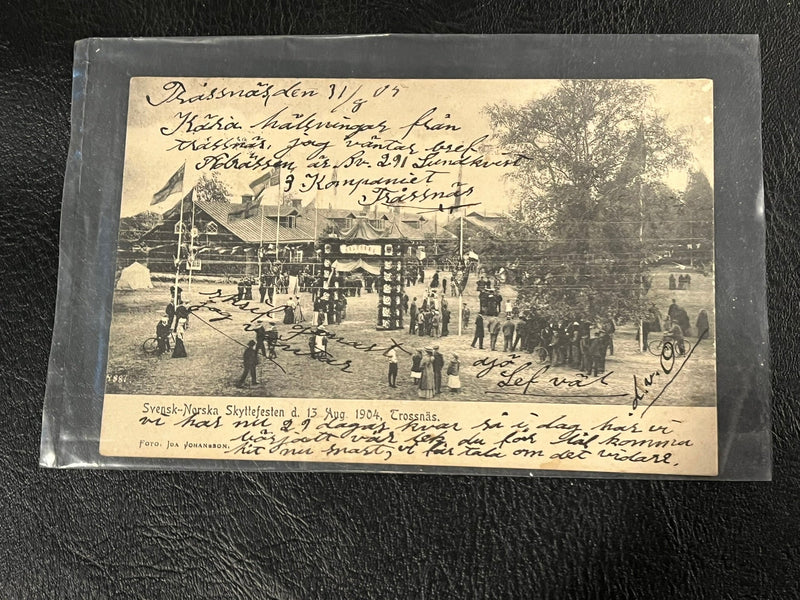 Tråssnäs den 31/8 05
Kära hälsningar från
tråssnäs, jag väntar bref
Adrässen är Nr. 291 Lundkvist
3 Kompaniet
Tråssnäs
skrif genast
jag väntar
adjö
Lef väl
d.v.O
4881
Svensk-Norska Skyttefesten d. 13 Aug. 1904, Trossnäs.
Foto. Joa Johansson.
vi har nu 29 dagar kvar så i dag har vi
börjat vår du får lof komma
hit nu snart, vi får tala om det vidare.